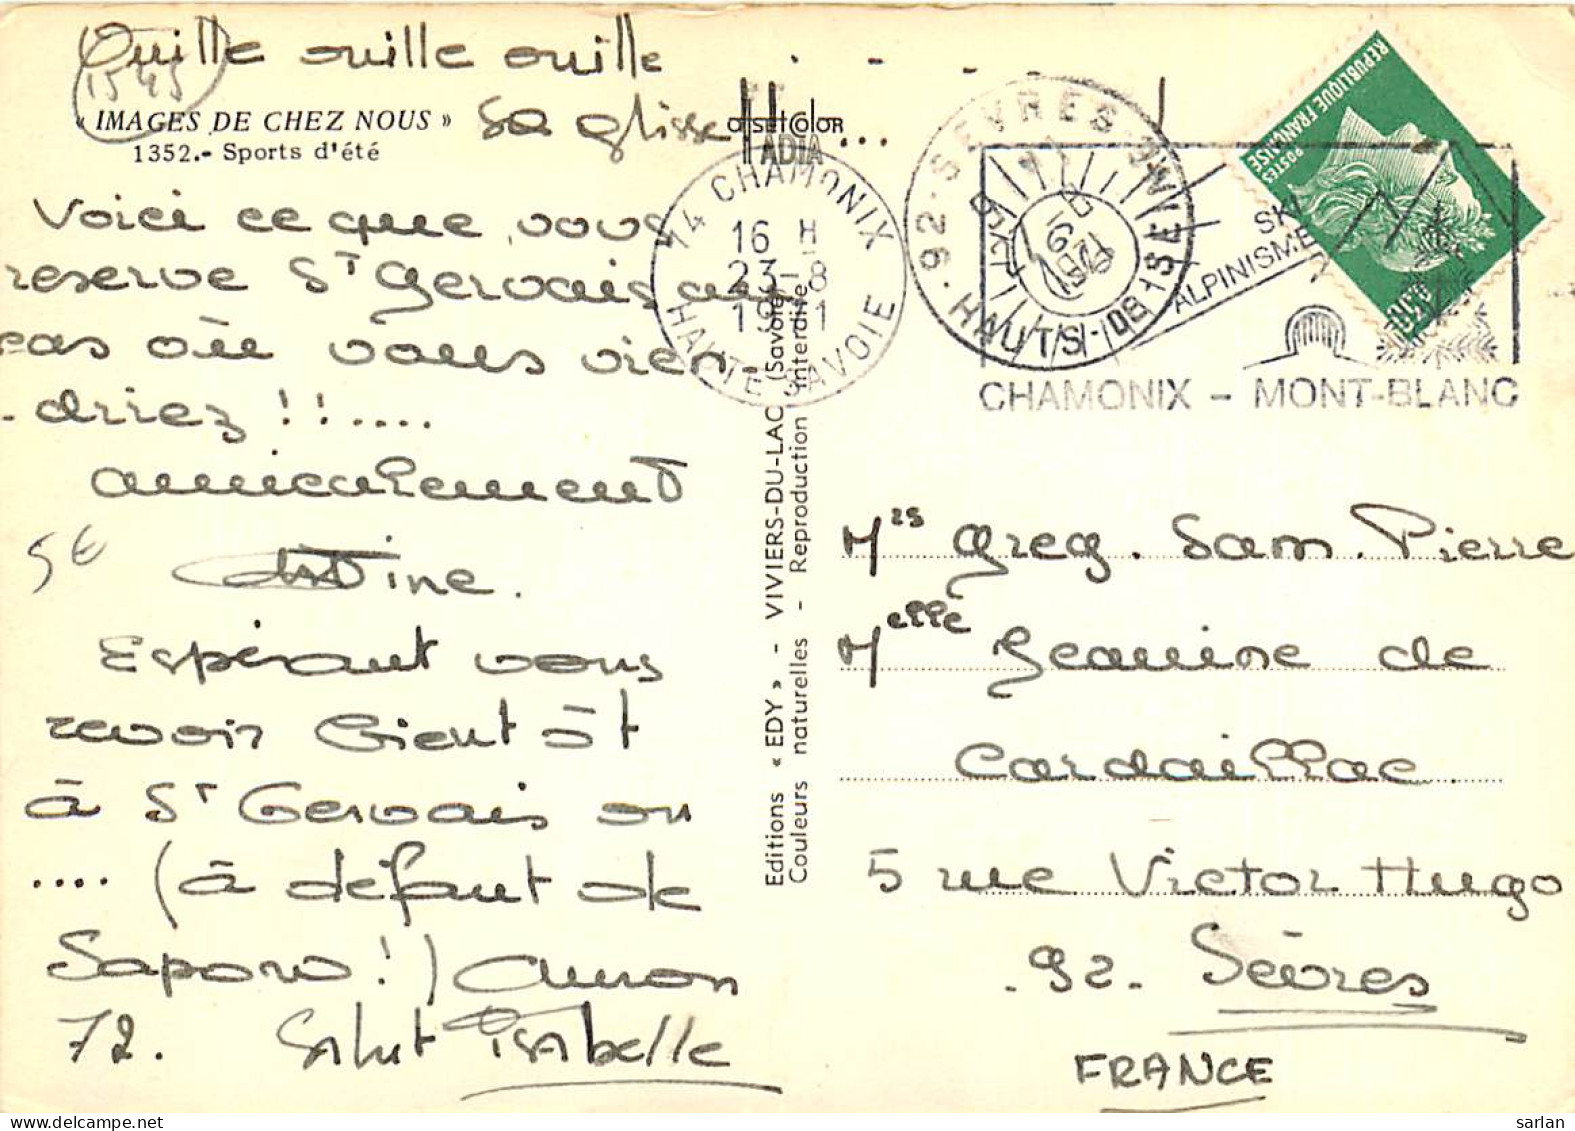 Ouille ouille ouille . - . - .
1545
« IMAGES DE CHEZ NOUS »
1352.- Sports d'été
Sa glisse !! ...
offsetColor
ADIA
Voici ce que vous
reserve St Gervais au
cas où vous vien-
-driez !!....
amicalement
5€
Titine.
Espérant vous
revoir bientôt
à St Gervais ou
.... (à défaut de
Saporo !) Auron
72. Salut Isabelle
Editions « EDY » - VIVIERS-DU-LAC (Savoie)
Couleurs naturelles - Reproduction interdite
74 CHAMONIX
16 H
23-8
1971
HAUTE-SAVOIE
92-SEVRES
HAUTS-DE-SEINE
SKI
ALPINISME
CHAMONIX - MONT-BLANC
REPUBLIQUE FRANÇAISE
POSTES
0,30
Mrs Greg. Sam. Pierre
Melle Jeanine de
Cardaillac
5 rue Victor Hugo
92. Sèvres
FRANCE
sarlan